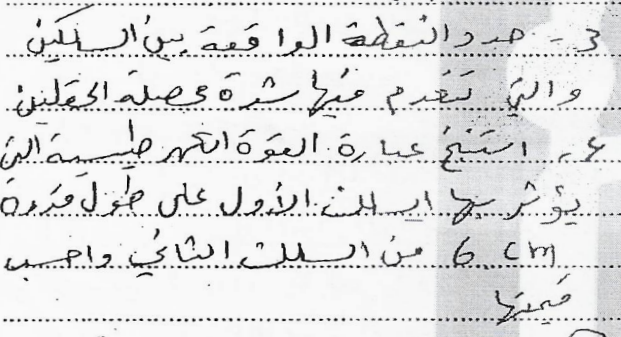 3- حدد النقطة الواقعة بين السلكين
والتي تنعدم فيها شدة محصلة الحقلين
4- استنتج عبارة القوة الكهرطيسية التي
يؤثر بها السلك الأول على طول قدره
6 cm من السلك الثاني واحسب
قيمتها